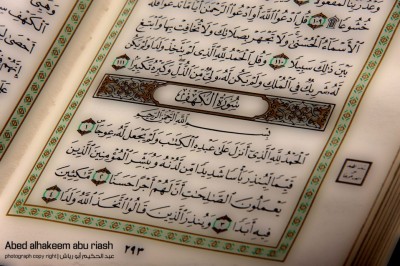 خُشُوعًا ۩ ١٠٩ قُلِ ٱدْعُوا۟ ٱللَّهَ أَوِ ٱدْعُوا۟ ٱلرَّحْمَٰنَ
ٱلْأَسْمَآءُ ٱلْحُسْنَىٰ وَلَا تَجْهَرْ بِصَلَاتِكَ وَلَا تُخَافِتْ بِهَا وَٱبْتَغِ
بَيْنَ ذَٰلِكَ سَبِيلًا ١١٠ وَقُلِ ٱلْحَمْدُ لِلَّهِ ٱلَّذِى لَمْ يَتَّخِذْ وَلَدًا وَلَمْ يَكُن
لَّهُۥ شَرِيكٌ فِى ٱلْمُلْكِ وَلَمْ يَكُن لَّهُۥ وَلِىٌّ مِّنَ ٱلذُّلِّ وَكَبِّرْهُ تَكْبِيرًۢا ١١١
سُورَةُ الكَهْفِ
بِسْمِ ٱللَّهِ ٱلرَّحْمَٰنِ ٱلرَّحِيمِ
ٱلْحَمْدُ لِلَّهِ ٱلَّذِىٓ أَنزَلَ عَلَىٰ عَبْدِهِ ٱلْكِتَٰبَ وَلَمْ يَجْعَل لَّهُۥ عِوَجَا ۜ ١
قَيِّمًا لِّيُنذِرَ بَأْسًا شَدِيدًا مِّن لَّدُنْهُ وَيُبَشِّرَ ٱلْمُؤْمِنِينَ ٱلَّذِينَ
يَعْمَلُونَ ٱلصَّٰلِحَٰتِ أَنَّ لَهُمْ أَجْرًا حَسَنًا ٢ مَّٰكِثِينَ
فِيهِ أَبَدًا ٣ وَيُنذِرَ ٱلَّذِينَ قَالُوا۟ ٱتَّخَذَ ٱللَّهُ وَلَدًا ٤
٢٩٣
Abed alhakeem abu riash
photograph copy right | عبد الحكيم أبو رياش